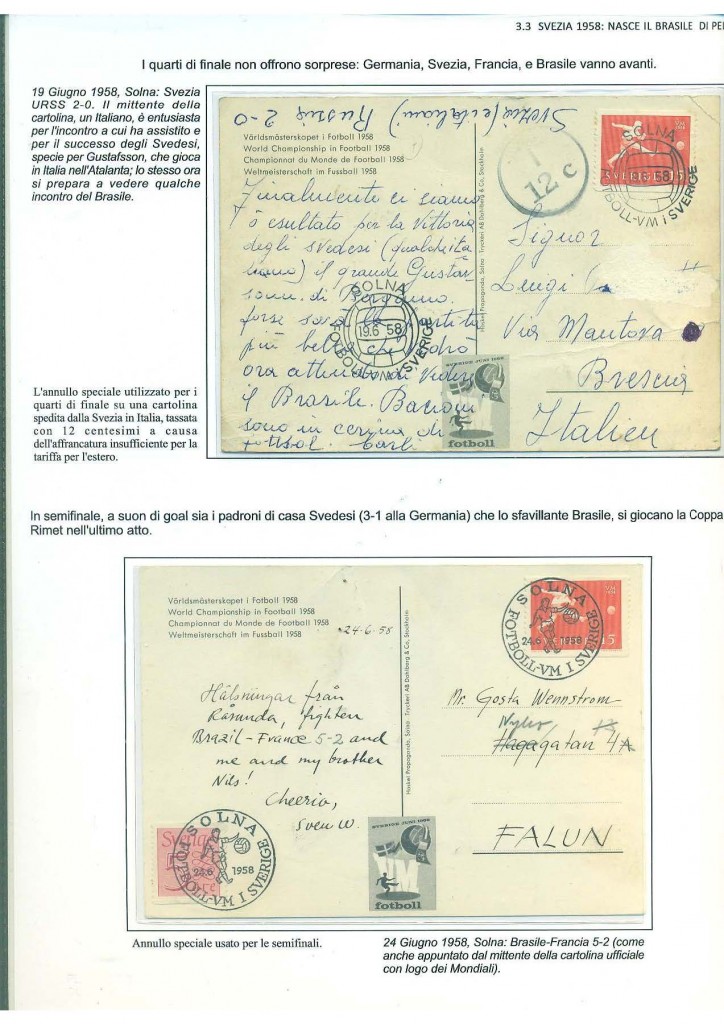 3.3 SVEZIA 1958: NASCE IL BRASILE DI PE
I quarti di finale non offrono sorprese: Germania, Svezia, Francia, e Brasile vanno avanti.
19 Giugno 1958, Solna: Svezia
URSS 2-0. Il mittente della
cartolina, un Italiano, è entusiasta
per l'incontro a cui ha assistito e
per il successo degli Svedesi,
specie per Gustafsson, che gioca
in Italia nell'Atalanta; lo stesso ora
si prepara a vedere qualche
incontro del Brasile.
Svezia (e italiani) Russia 2-0
Världsmästerskapet i Fotboll 1958
World Championship in Football 1958
Championnat du Monde de Football 1958
Weltmeisterschaft im Fussball 1958
Finalmente ci siamo
ò esultato per la Vittoria
degli svedesi (qualche ita
liano) il grande Gustav
sonn. di Bergamo.
forse sarà la partita
più bella che vedrò
ora attendo di vedere
il Brasile. Bacioni
sono in cerima di
fotbol. Carlo
SOLNA
19.6 58
FOTBOLL-VM i SVERIGE
12 c
SOLNA
19.6 58
FOTBOLL-VM i SVERIGE
SVERIGE 15
Hasket Propaganda, Solna · Tryckeri AB Dahlberg & Co, Stockholm
Signor
Luigi
Via Mantova
Brescia
Italien
SVERIGE JUNI 1958
fotboll
L'annullo speciale utilizzato per i
quarti di finale su una cartolina
spedita dalla Svezia in Italia, tassata
con 12 centesimi a causa
dell'affrancatura insufficiente per la
tariffa per l'estero.
In semifinale, a suon di goal sia i padroni di casa Svedesi (3-1 alla Germania) che lo sfavillante Brasile, si giocano la Coppa
Rimet nell'ultimo atto.
Världsmästerskapet i Fotboll 1958
World Championship in Football 1958
Championnat du Monde de Football 1958
Weltmeisterschaft im Fussball 1958
24-6-58
Hälsningar från
Råsunda, fighten
Brazil - France 5-2 and
me and my brother
Nils!
Cheerio,
Sven W.
Hasket Propaganda, Solna · Tryckeri AB Dahlberg & Co, Stockholm
SOLNA
24.6 1958
FOTBOLL-VM I SVERIGE
15
Mr. Gosta Wennstrom
Hagagatan 4A
FALUN
Sverige
SOLNA
24.6 1958
FOTBOLL-VM I SVERIGE
SVERIGE JUNI 1958
VM
fotboll
Annullo speciale usato per le semifinali.
24 Giugno 1958, Solna: Brasile-Francia 5-2 (come
anche appuntato dal mittente della cartolina ufficiale
con logo dei Mondiali).